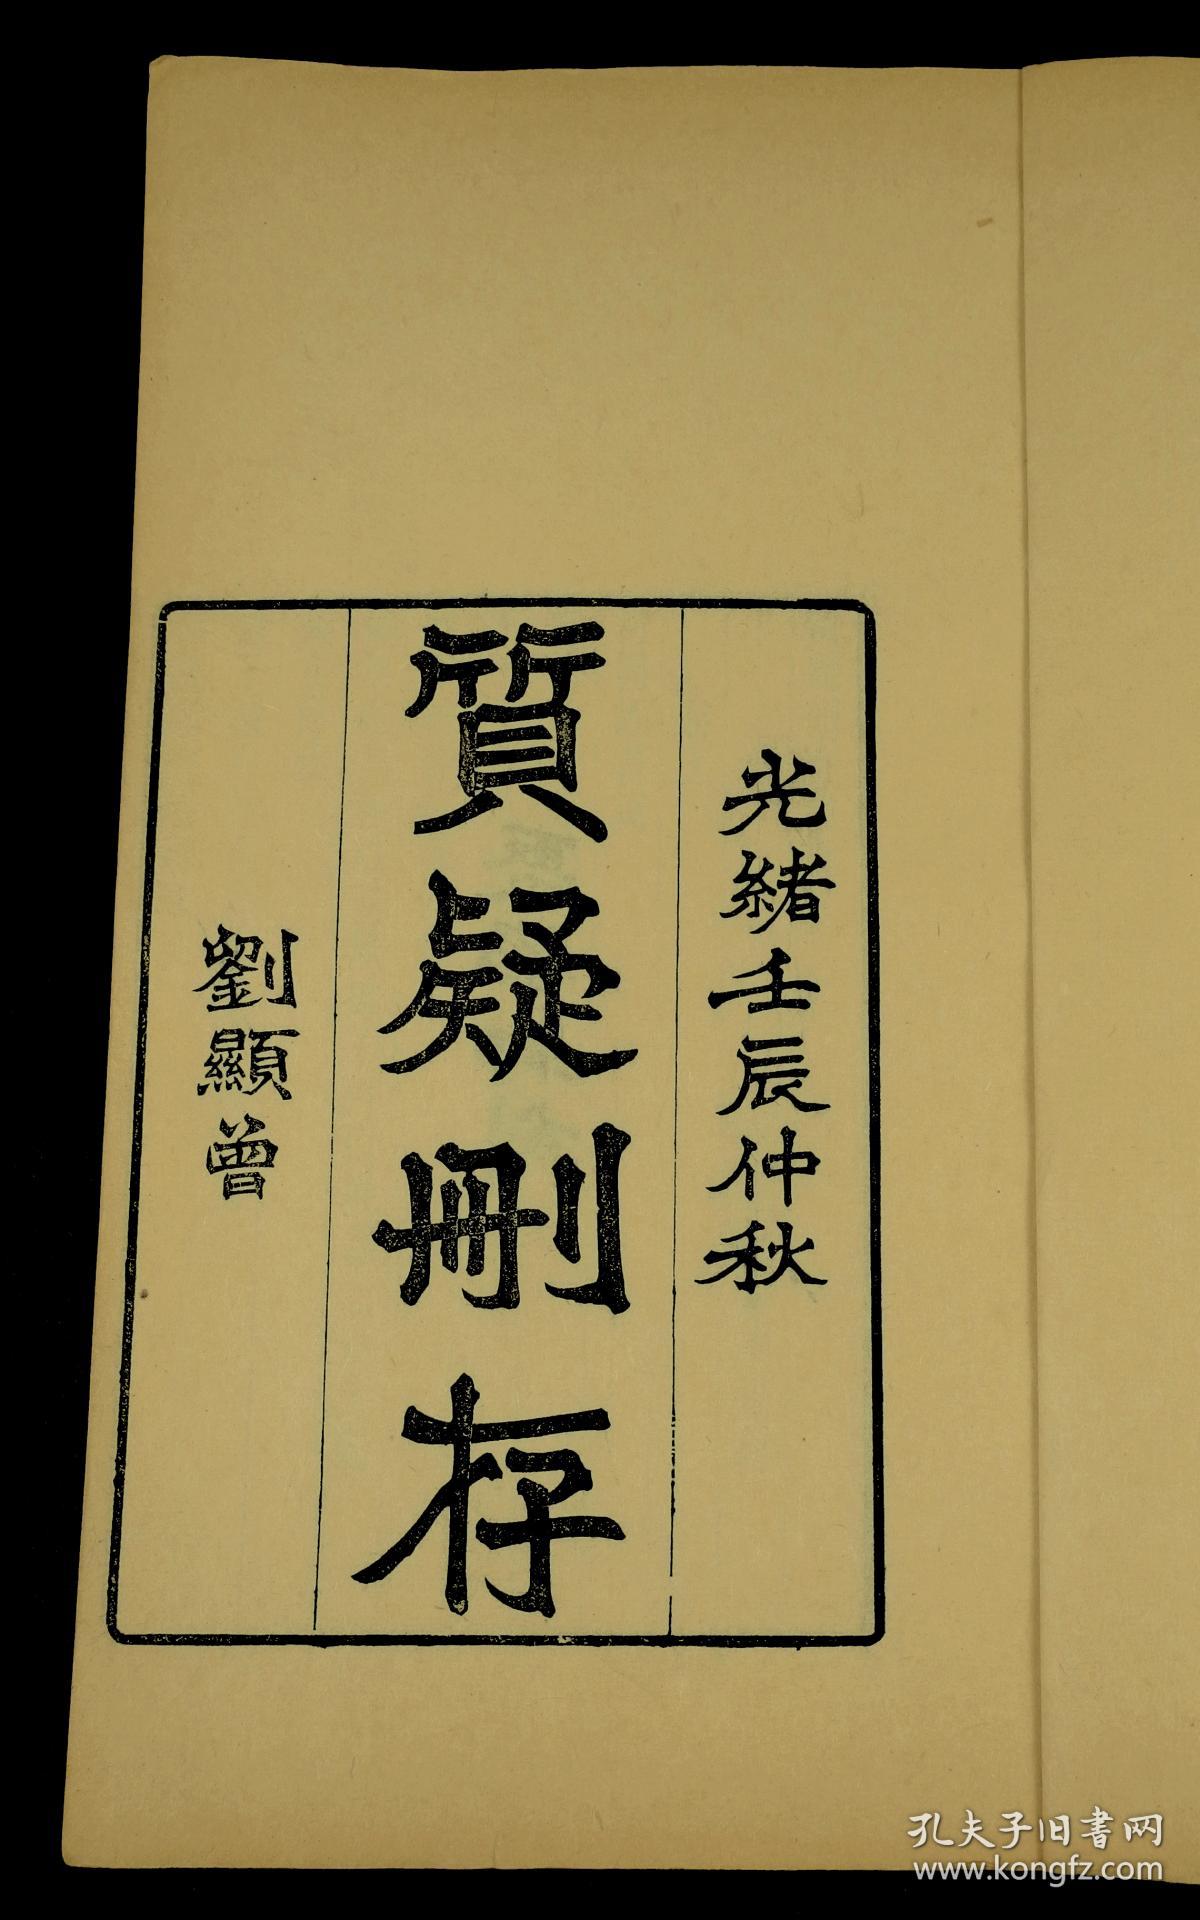 光緒壬辰仲秋
質疑刪存
劉顯曾
孔夫子旧書网
www.kongfz.com